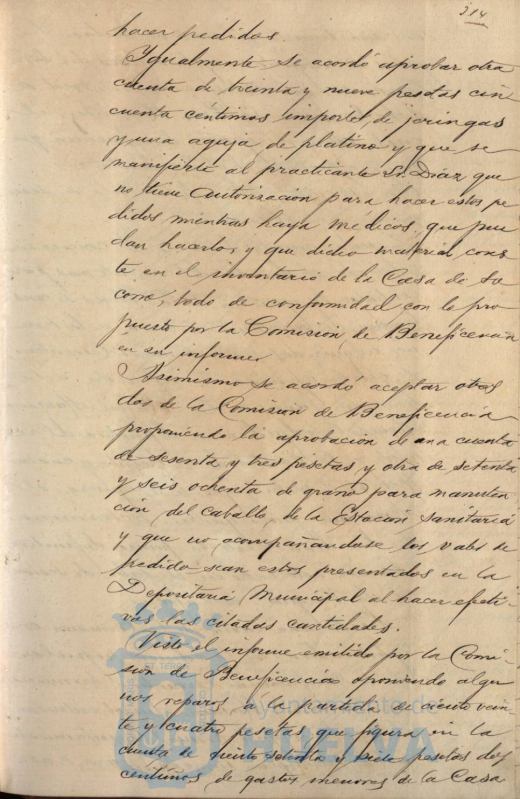 314
hacer pedidos.
Igualmente se acordó aprobar otra
cuenta de treinta y nueve pesetas cin
cuenta céntimos importe de jeringas
y una aguja de platino y que se
manifieste al practicante Sr. Díaz que
no tiene autorización para hacer estos pe
didos mientras haya medicos que pue
dan hacerlo, y que dicho material cons
te en el inventario de la Casa de So
corro, todo de conformidad con lo pro
puesto por la Comisión de Beneficencia
en su informe.
Asimismo se acordó aceptar otros
dos de la Comisión de Beneficencia
proponiendo la aprobación de una cuenta
de sesenta y tres pesetas y otra de setenta
y seis ochenta de grano para manuten
ción del caballo de la Estación Sanitaria
y que no acompañandose los vales de
pedido sean estos presentados en la
Depositaria Municipal al hacer efecti-
vas las citadas cantidades.
Visto el informe emitido por la Comi-
sión de Beneficencia oponiendo algu
nos reparos a la partida de ciento vein
te y cuatro pesetas que figura en la
cuenta de ciento setenta y siete pesetas dos
centimos, de gastos menores de la Casa
Ayuntamiento de
HUELVA